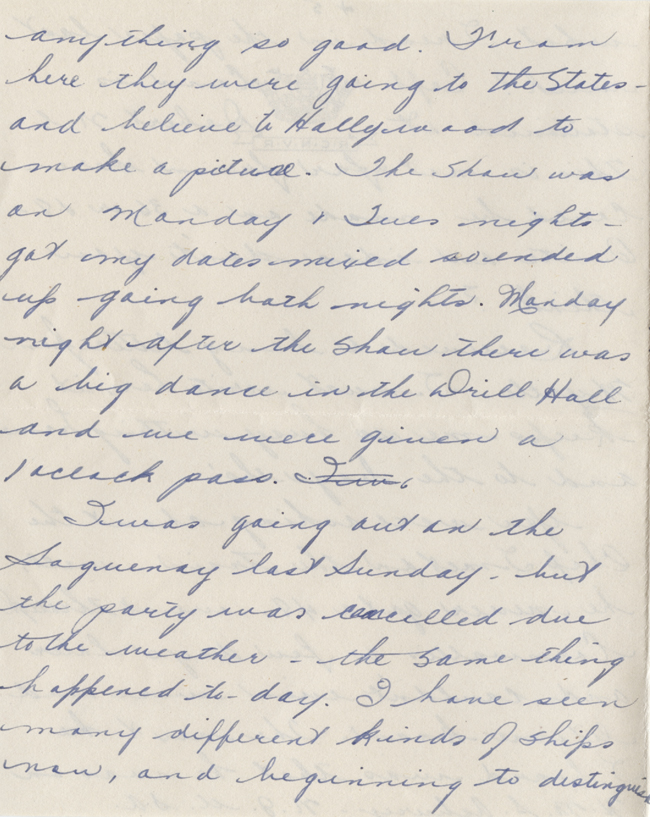 anything so good. From
here they were going to the States -
and believe to Hollywood to
make a picture. The Show was
on Monday & Tues nights -
got my dates mixed so ended
up going both nights. Monday
night after the show there was
a big dance in the Drill Hall
and we were given a
1 oclock pass. I was
I was going out on the
Saguenay last Sunday - but
the party was cancelled due
to the weather - the same thing
happened to-day. I have seen
many different kinds of ships
now, and beginning to distinguish